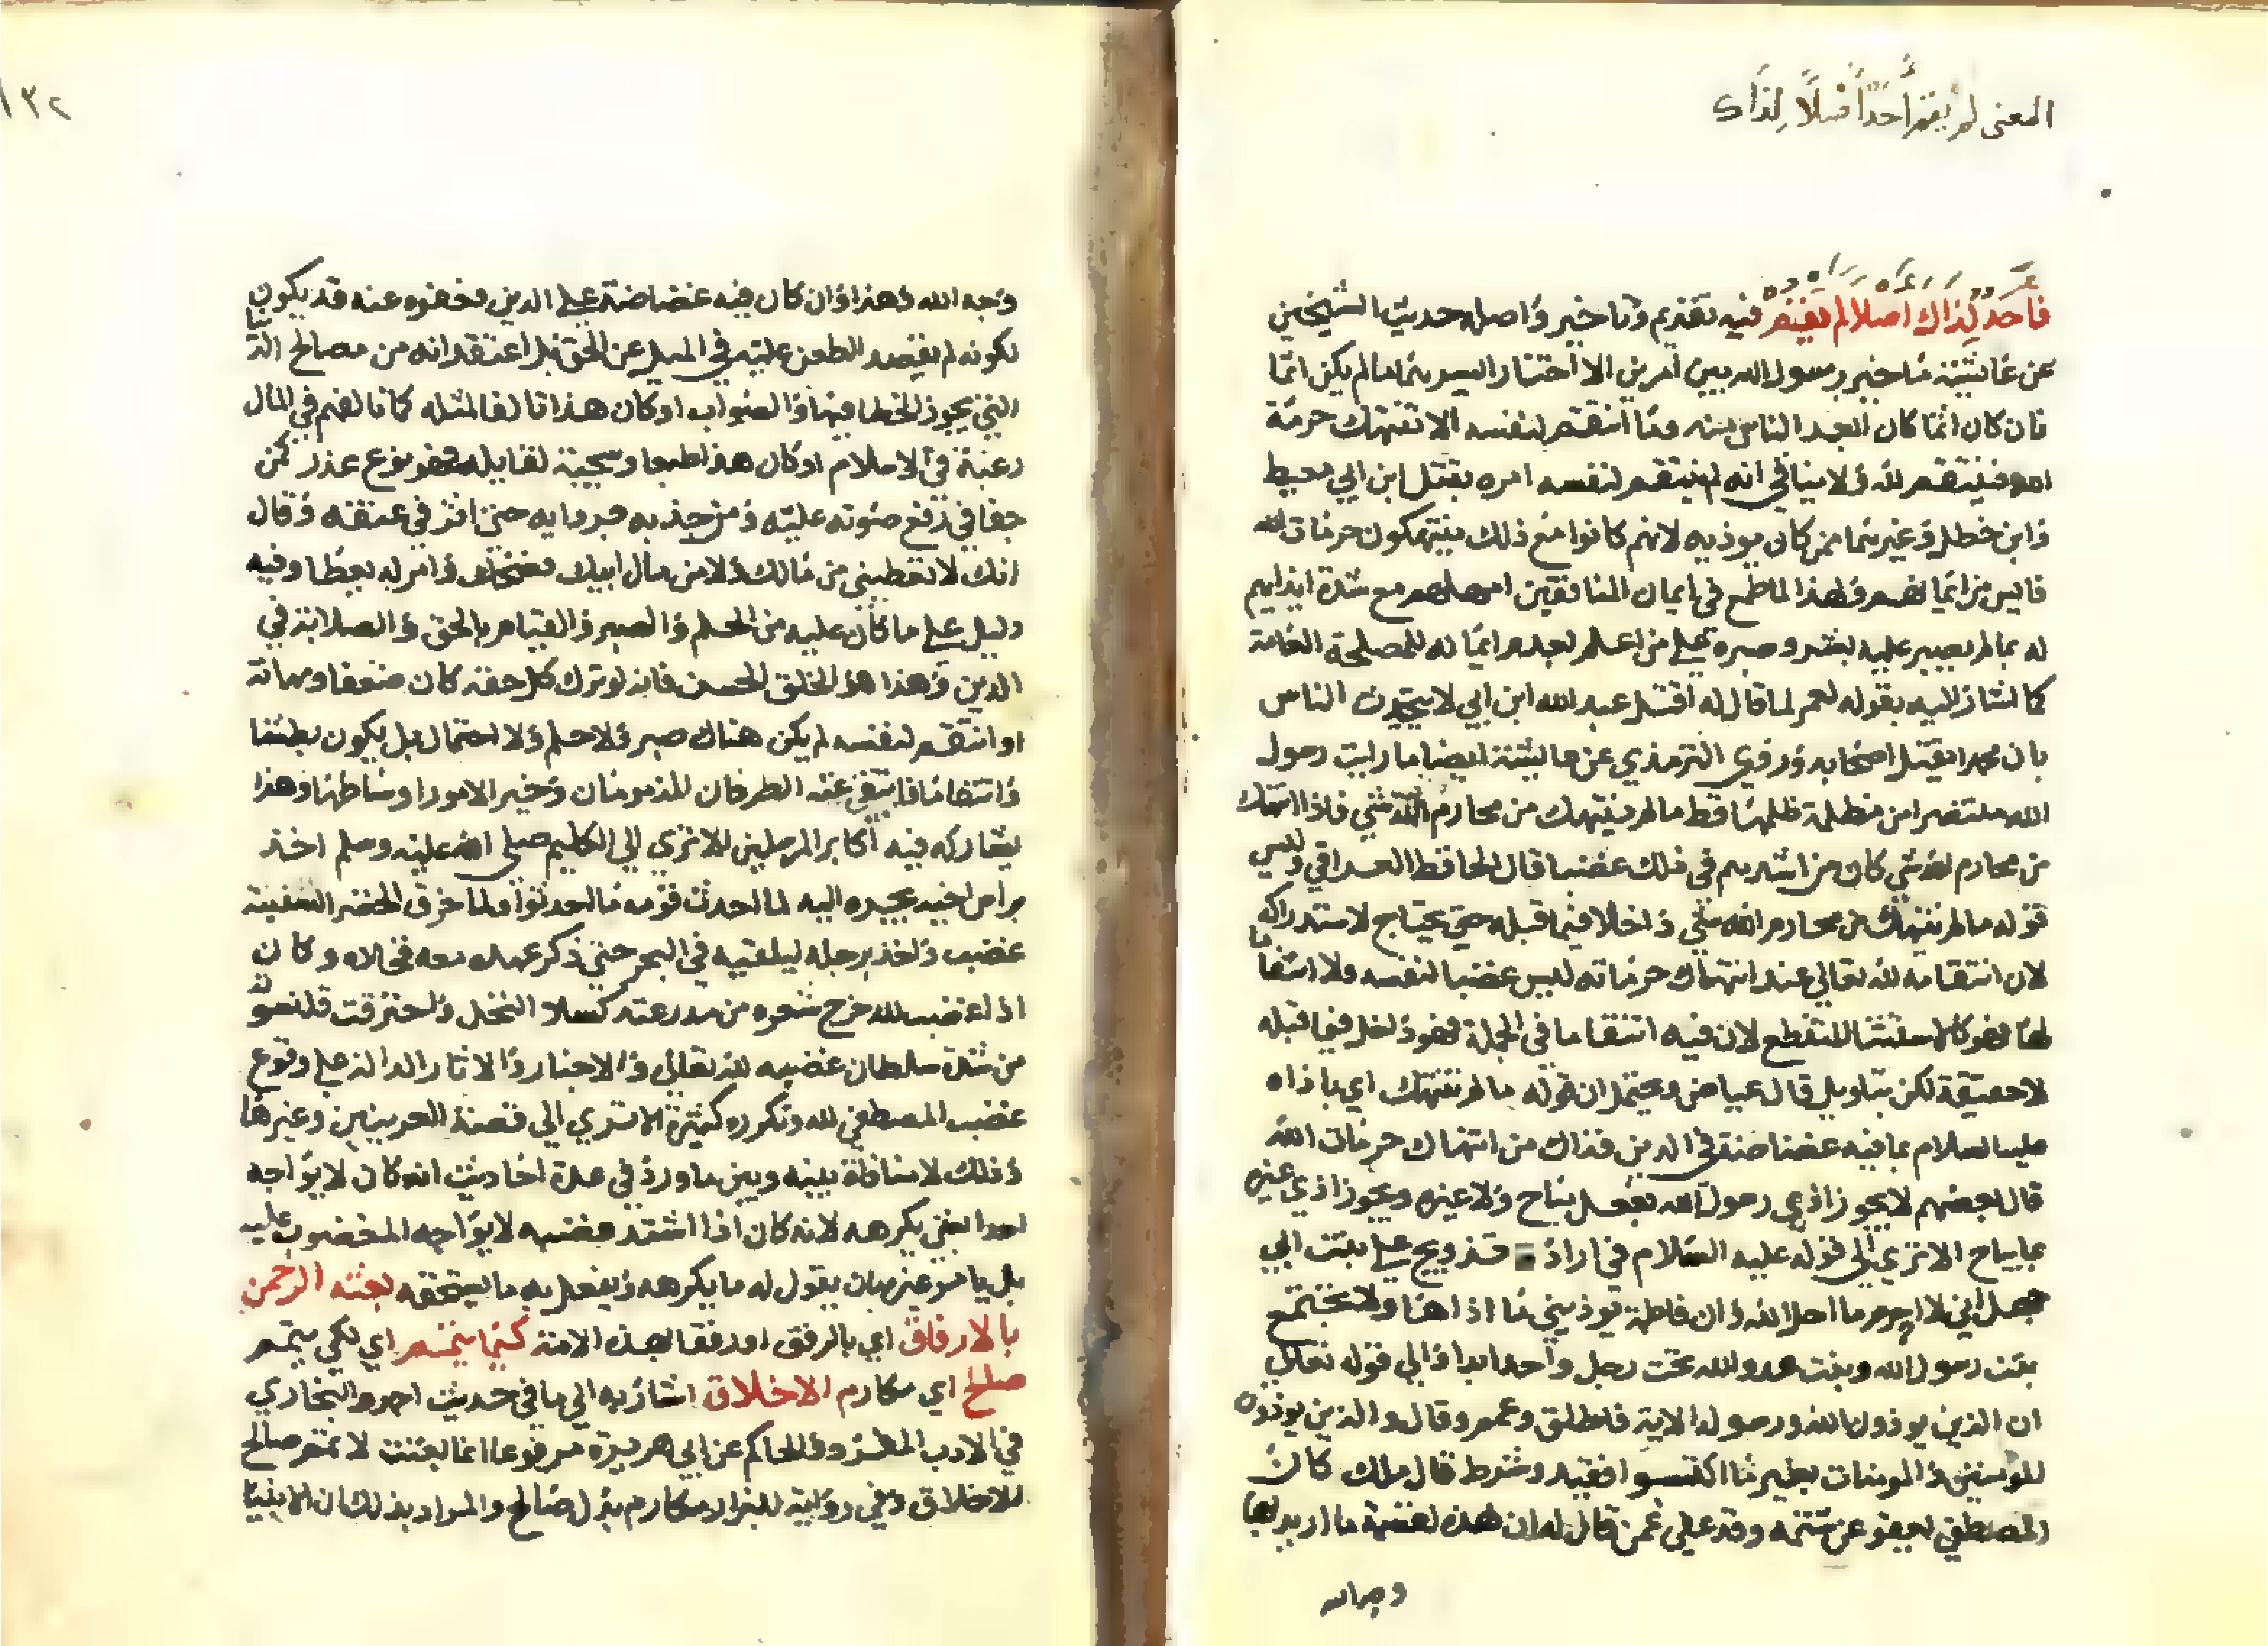 المعنى لم يقم أحدا أصلا لذاك
فاحد لذاك اصلا لم يقم فيه تقديم وتاخير واصله حديث الشيخين
عن عائشة ما خير رسول الله بين امرين الا اختار ايسرهما ما لم يكن اثما
فان كان اثما كان ابعد الناس منه وما انتقم لنفسه الا تنتهك حرمة
الله فينتقم لله ولا ينافي انه لم ينتقم لنفسه امره بقتل ابن ابي معيط
وابن خطل وغيرهما ممن كان يوذيه لانهم كانوا مع ذلك ينتهكون حرمات الله
فايس من ايمانهم ولهذا لما طمع في ايمان المنافقين امهلهم مع شدة ايذايهم
له بما لم يصبر عليه بشر وصبره علي من اعلم بعدم ايمانه للمصلحة العامة
كما اشار اليه بقوله لعمر لما قال له اقتل عبد الله ابن ابي لا يتحدث الناس
بان محمدا يقتل اصحابه وروي الترمذي عن عائشة ايضا ما رايت رسول
الله منتصرا من مظلمة ظلمها قط ما لم ينتهك من محارم الله شي فاذا انتهك
من محارم الله شي كان من اشدهم في ذلك غضبا قال الحافظ العراقي وليس
قوله ما لم ينتهك من محارم الله شي داخلا فيما قبله حتي يحتاج لاستدراكه
لان انتقامه لله تعالي عند انتهاك حرماته ليس غضبا لنفسه ولا انتقاما
لها فهو كالاستثنا المنقطع لان فيه انتقاما في الجملة فهو داخل فيما قبله
لا حقيقة لكن بتاويل قال عياض ويحتمل ان قوله ما لم تنتهك اي باذاه
عليه السلام بما فيه غضاضة في الدين فذاك من انتهاك حرمات الله
قال بعضهم لا يجوز اذي رسول الله بفعل مباح ولا غيره ويجوز اذي غيره
بما يباح الا تري الي قوله عليه السلام في اراد تزويج علي بنت ابي
جهل اني لا احرم ما احل الله وان فاطمة يوذيني ما اذاها ولا تجتمع
بنت رسول الله وبنت عدو الله تحت رجل واحد ابدا والي قوله تعالي
ان الذين يوذون الله ورسوله الاية فاطلق وعمم وقال والذين يوذون
المؤمنين والمومنات بغير ما اكتسبوا فقيد وشرط قال مالك كان
المصطفي يعفو عن شتمه وقد عفي عمن قال له ان هذه لقسمة ما اريد بها
وجه الله
١٣٢
وجه الله وهذا وان كان فيه غضاضة علي الدين فعفوه عنه قد يكون
لكونه لم يقصد الطعن عليه في الميل عن الحق بل اعتقد انه من مصالح الدنيا
التي يجوز الخطا فيها والصواب او كان هذا تالفا لمثله كما تالفهم في المال
رغبة في الاسلام او كان هذا طبعا وسجية لقايله فهو نوع عذر كمن
جفا في رفع صوته عليه ومن جذبه بردايه حتي اثر في عنقه وقال
انك لا تعطيني من مالك ولا من مال ابيك فضحك وامر له بعطا وفيه
دليل علي ما كان عليه من الحلم والصبر والقيام بالحق والصلابة في
الدين وهذا هو الخلق الحسن فانه لو ترك كل حقه كان ضعفا ومهانة
او انتقم لنفسه لم يكن هناك صبر ولا حلم ولا احتمال بل يكون بطشا
وانتقاما فانتفي عنه الطرفان المذمومان وخير الامور اوساطها وهذا
يشاركه فيه اكابر المرسلين الا تري الي الكليم صلي الله عليه وسلم اخذ
براس اخيه يجره اليه لما احدث قومه ما احدثوا ولما خرق الخضر السفينة
غضب واخذ برجله ليلقيه في البحر حتي ذكر عهده معه فخلاه وكان
اذا غضب لله خرج شعره من مدرعته كسلا النخل واحترقت قلنسوته
من شدة سلطان غضبه لله تعالي والاخبار والاثار الدالة علي وقوع
غضب المصطفي لله وتكرره كثيرة الا تري الي قصة العرينيين وغيرها
وذلك لا منافاة بينه وبين ما ورد في عدة احاديث انه كان لا يواجه
احدا بشي يكرهه لانه كان اذا اشتد غضبه لا يواجه المغضوب عليه
بل يامر غيره بان يقول له ما يكرهه ويفعل به ما يستحقه بعثه الرحمن
بالارفاق اي بالرفق او رفقا بهذه الامة كيما يتمم اي لكي يتمم
صالح اي مكارم الاخلاق اشار به الي ما في حديث احمد والبخاري
في الادب المفرد والحاكم عن ابي هريرة مرفوعا انما بعثت لاتمم صالح
الاخلاق وفي رواية للبزار مكارم بدل صالح والمراد بذلك ان الانبيا